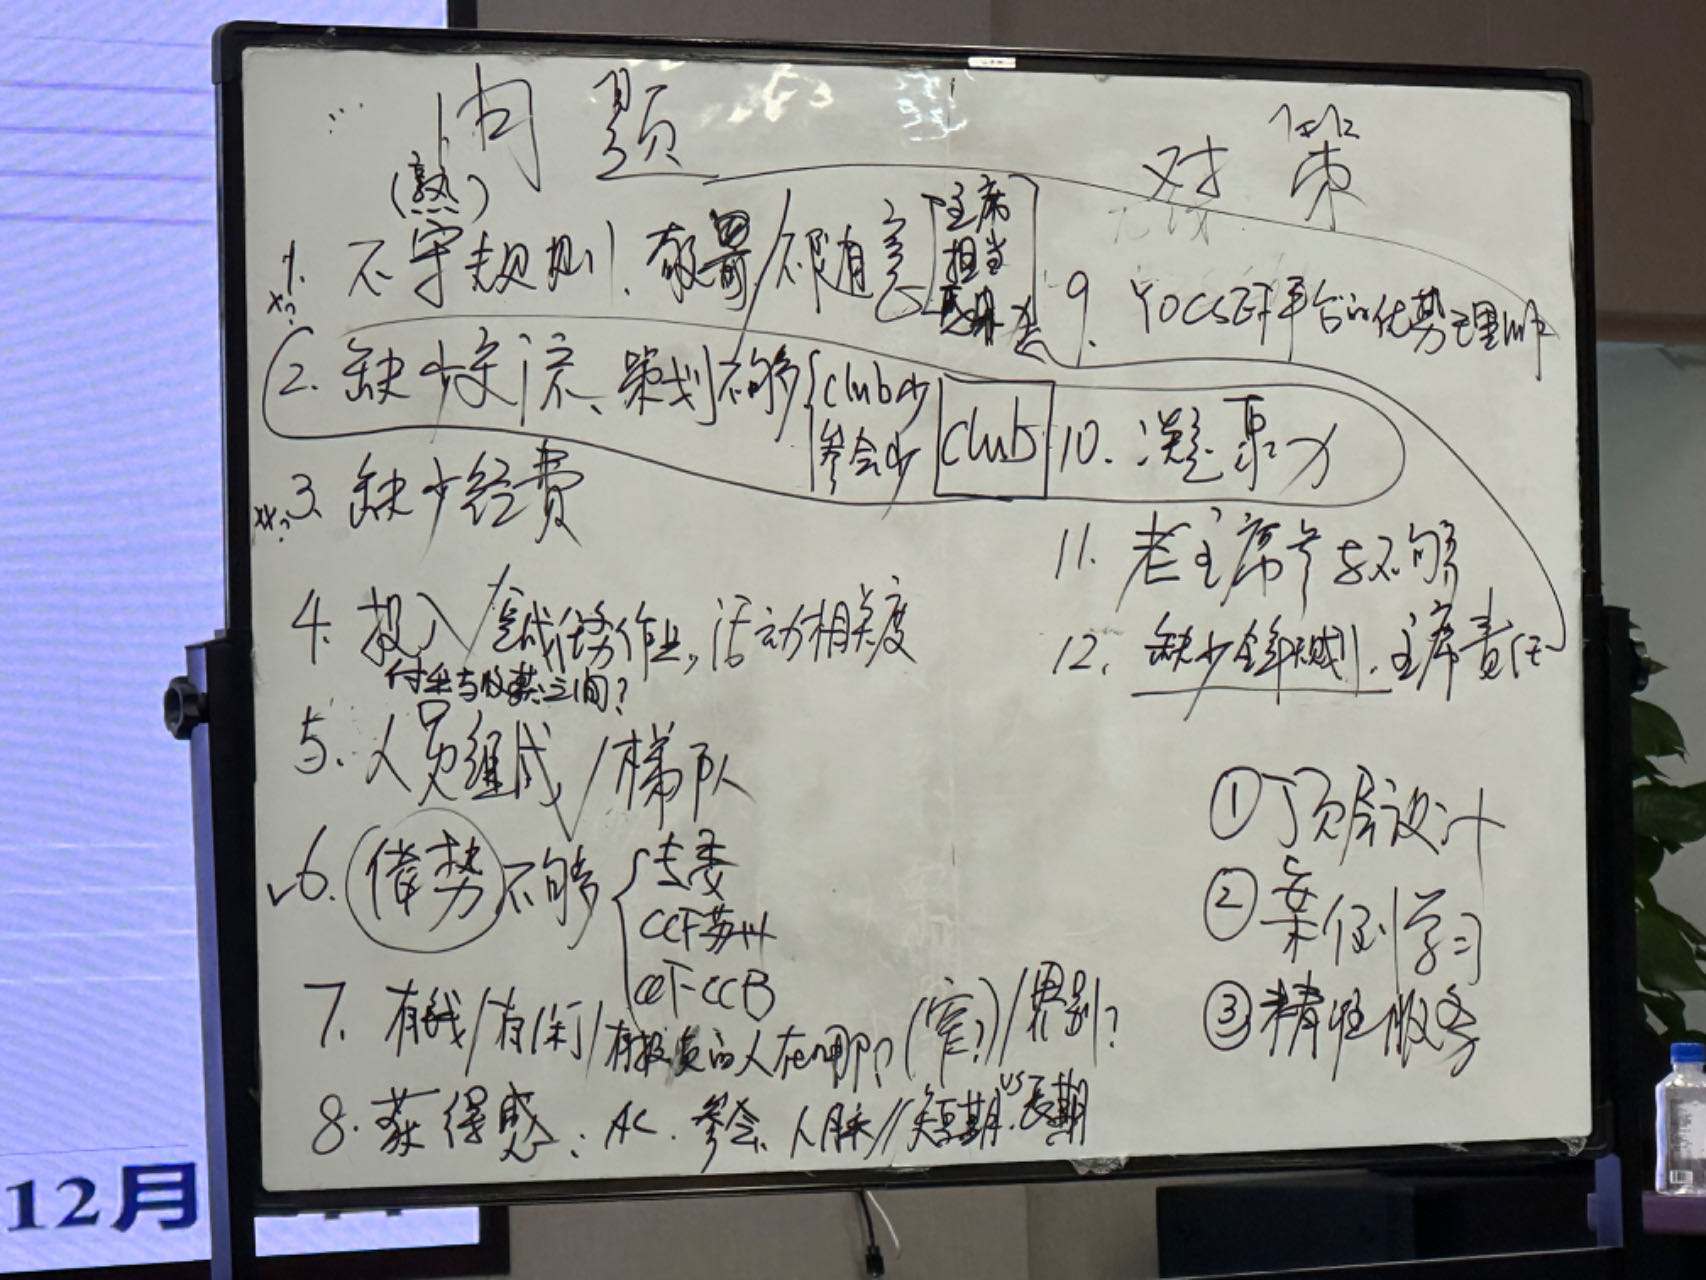 问题
对策
(熟)
1. 不守规则、敬畏/不愿有意
主席
担当
2. 缺少交流、策划不够 {club少
参会少
club
3. 缺少经费
4. 投入/完成任务作业,活动相关度
付出与收获之间?
5. 人员组成/梯队
6. 借势不够 {专委
CCF苏州
CCF CCB
7. 有钱/有闲/有投资的人在哪? (官?)/界别?
8. 获得感、AC、参会、人脉//短期vs长期
9. YOCSEF平台的优势理解
10. 凝聚力
11. 老主席参与不够
12. 缺少全年规划、主席责任
①顶层设计
②案例学习
③精准服务
12月